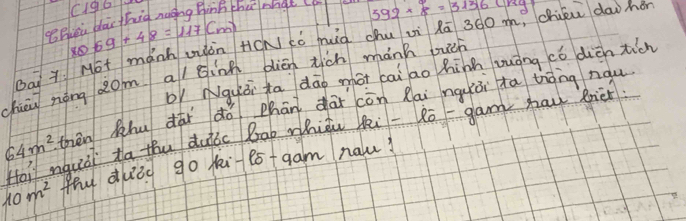 (196
592 + 8 = 3136 (kg)
Chiều dài thửa ruộng hình chữ nhật là
69 + 48 = 117 (m)
Bài 7: Một mảnh vườn HCN có nửa chu vi là 360 m, chiều dài hơn
chiều rộng 20m. a/ Tính diện tích mảnh vườn
b/ Người ta đào một cái ao hình vuông có diện tích
64m² trên khu đất đó. Phần đất còn lại người ta trồng rau.
Hỏi người ta thu được bao nhiêu ki-lô-gam rau biết:
10m² thu được 90 ki-lô-gam rau!